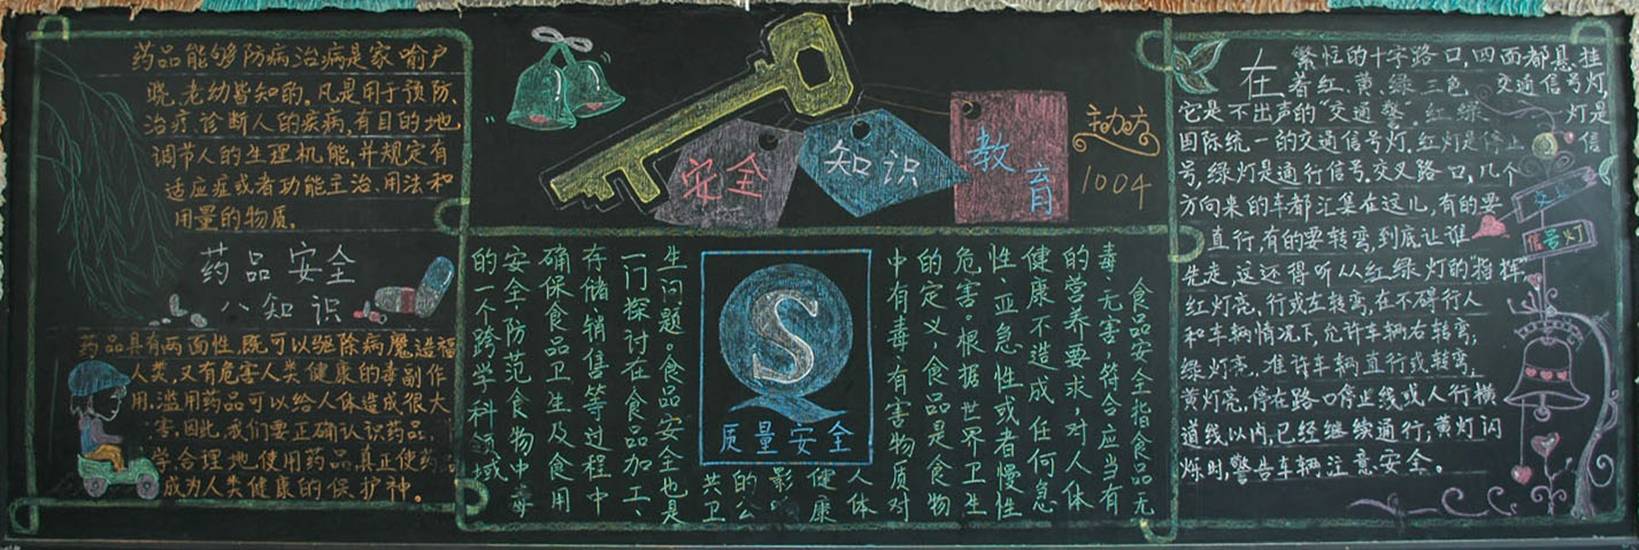 药品能够防病治病是家喻户
晓、老幼皆知的。凡是用于预防、
治疗、诊断人的疾病,有目的地
调节人的生理机能,并规定有
适应症或者功能主治、用法和
用量的物质。
药品安全
八知识
药品具有两面性,既可以驱除病魔造福
人类,又有危害人类健康的毒副作
用,滥用药品可以给人体造成很大
害,因此,我们要正确认识药品,
学、合理地使用药品,真正使药
成为人类健康的保护神。
安全
知识
教育
1004
食品安全指食品无
毒、无害,符合应当有
的营养要求,对人体
健康不造成任何急
性、亚急性或者慢性
危害。根据世界卫生
的定义,食品是食物
中有毒、有害物质对
人体
健康
影
的公
共卫
生问题。食品安全也是
一门探讨在食品加工、
存储、销售等过程中
确保食品卫生及食用
安全,防范食物中毒
的一个跨学科领域
S
质量安全
在繁忙的十字路口,四面都悬挂
着红、黄、绿三色交通信号灯,
它是不出声的“交通警”。红绿灯是
国际统一的交通信号灯。红灯是停止信
号,绿灯是通行信号。交叉路口,几个
方向来的车都汇集在这儿,有的要
直行,有的要转弯,到底让谁
先走,这还得听从红绿灯的“指挥”
红灯亮,行或左转弯,在不碍行人
和车辆情况下,允许车辆右转弯;
绿灯亮,准许车辆直行或转弯;
黄灯亮,停在路口停止线或人行横
道线以内,已经继续通行;黄灯闪
烁时,警告车辆注意安全。
信号灯